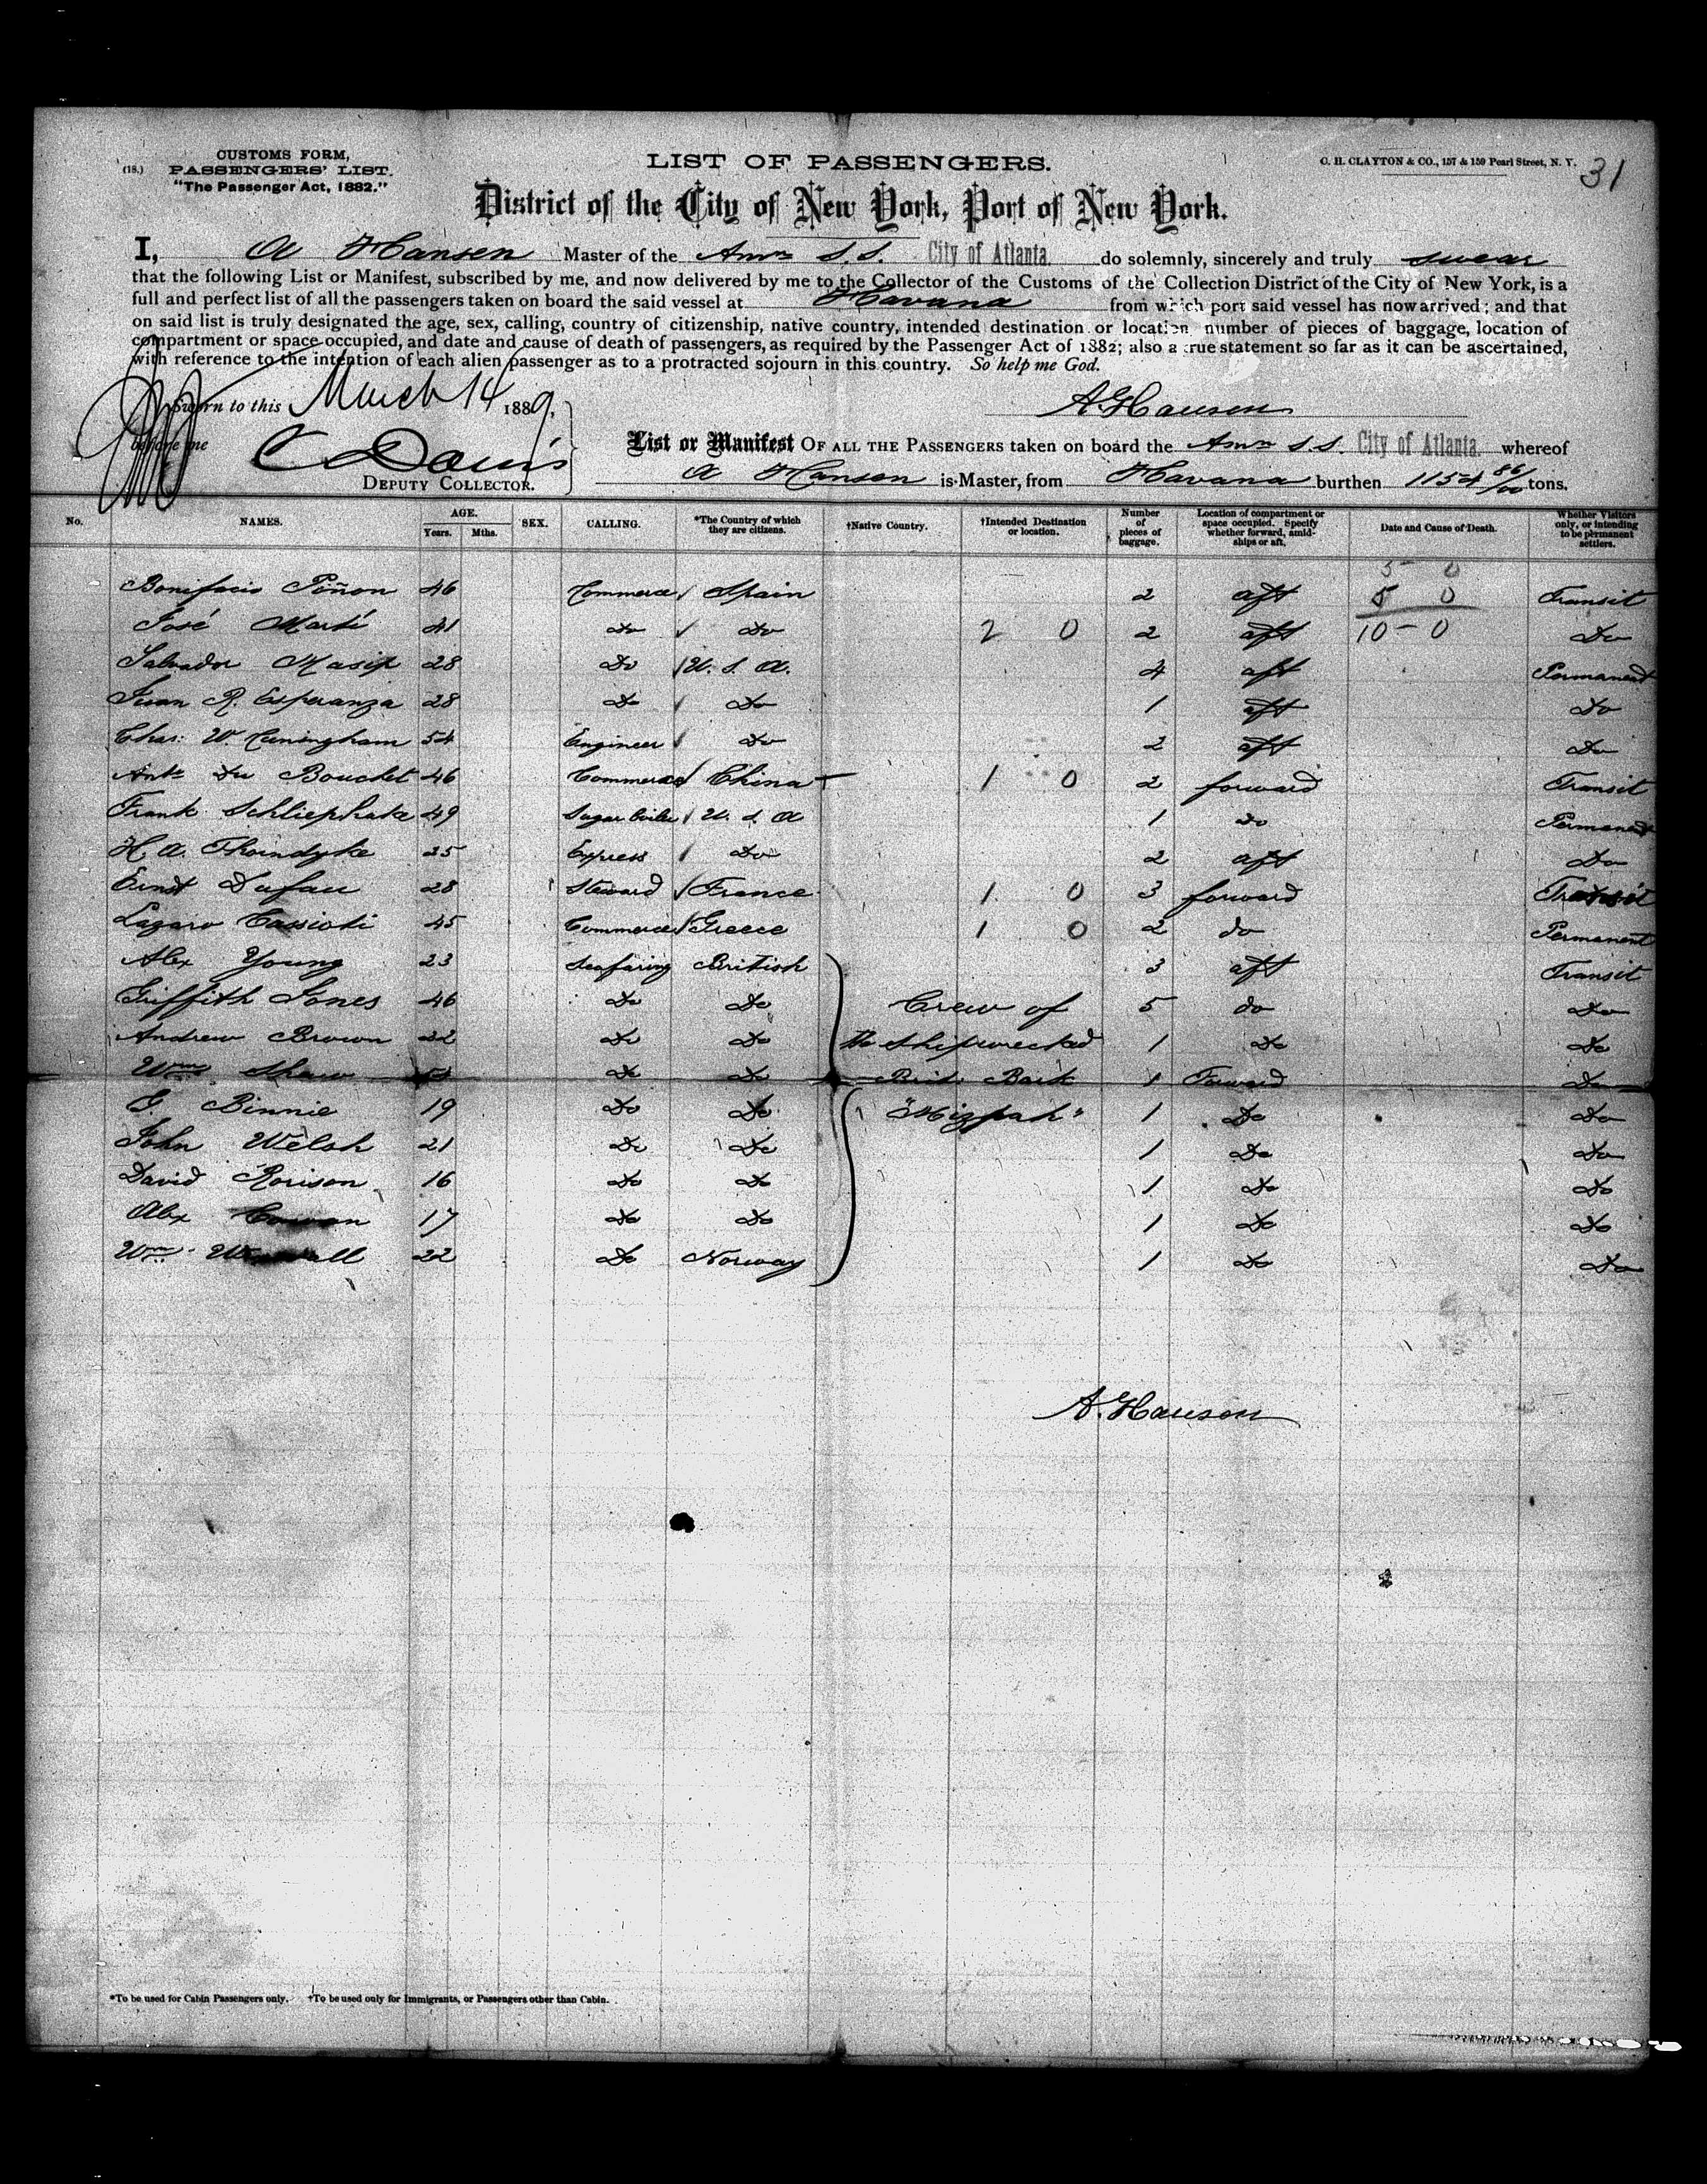 CUSTOMS FORM,
(18.) PASSENGERS' LIST.
"The Passenger Act, 1882."
LIST OF PASSENGERS.
C. H. CLAYTON & CO., 157 & 159 Pearl Street, N. Y. 31
District of the City of New York, Port of New York.
I, A Hansen Master of the Amn S.S. City of Atlanta do solemnly, sincerely and truly swear
that the following List or Manifest, subscribed by me, and now delivered by me to the Collector of the Customs of the Collection District of the City of New York, is a
full and perfect list of all the passengers taken on board the said vessel at Havana from which port said vessel has now arrived; and that
on said list is truly designated the age, sex, calling, country of citizenship, native country, intended destination or location number of pieces of baggage, location of
compartment or space occupied, and date and cause of death of passengers, as required by the Passenger Act of 1882; also a true statement so far as it can be ascertained,
with reference to the intention of each alien passenger as to a protracted sojourn in this country. So help me God.
Sworn to this March 14 1889,
A. Hansen
before me
C Davis
DEPUTY COLLECTOR.
List or Manifest OF ALL THE PASSENGERS taken on board the Amn S.S. City of Atlanta whereof
A Hansen is Master, from Havana burthen 1154 86/100 tons.
No. NAMES. AGE. Years. Mths. SEX. CALLING. *The Country of which they are citizens. †Native Country. †Intended Destination or location. Number of pieces of baggage. Location of compartment or space occupied. Specify whether forward, amidships or aft. Date and Cause of Death. Whether Visitors only, or intending to be permanent settlers.
5 0
Bonifacio Piñon 46 Commerce / Spain 2 aft 5 0 Transit
José Martí 41 Do ✓ Do 2 0 2 aft 10 - 0 Do
Salvador Masip 28 Do / U. S. A. 4 aft Permanent
Juan R. Esperanza 28 Do / Do 1 aft Do
Chas: W. Cuningham 54 Engineer / Do 2 aft Do
Ante Du Bouchet 46 Commerce / China 1 0 2 forward Transit
Frank Schliephake 49 Sugar boiler / U. S. A 1 do Permanent
H. A. Thorndyke 25 Express / Do 2 aft Do
Ernst Dufau 28 Steward / France 1 0 3 forward Transit
Lazaro Cassioti 45 Commerce / Greece 1 0 2 do Permanent
Alex Young 23 Seafaring British 3 aft Transit
Griffith Jones 46 Do Do Crew of 5 do Do
Andrew Brown 22 Do Do the shipwrecked 1 Do Do
Wm Shaw Do Do Brit. Bark 1 Forward Do
G. Binnie 19 Do Do "Mizpah" 1 Do Do
John Welsh 21 Do Do 1 Do Do
David Rorison 16 Do Do 1 Do Do
Alex 17 Do Do 1 Do Do
Wm 22 Do Norway 1 Do Do
A. Hansen
*To be used for Cabin Passengers only. †To be used only for Immigrants, or Passengers other than Cabin.